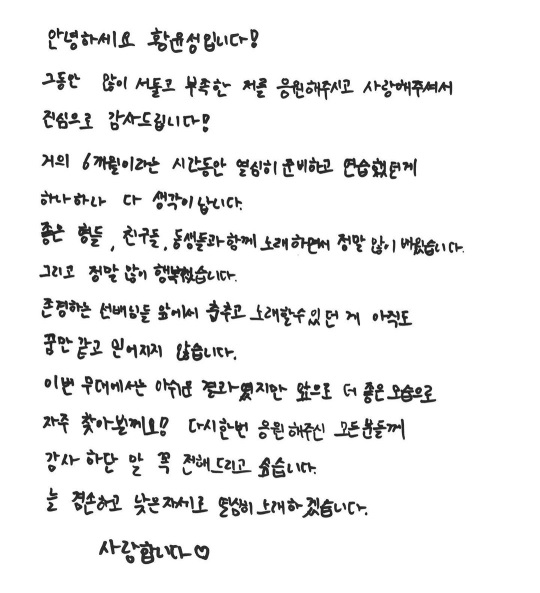 안녕하세요 황윤성입니다!
그동안 많이 서툴고 부족한 저를 응원해주시고 사랑해주셔서
진심으로 감사드립니다!
거의 6개월이라는 시간동안 열심히 준비하고 연습했던게
하나하나 다 생각이납니다.
좋은 형들, 친구들, 동생들과 함께 노래하면서 정말 많이 배웠습니다.
그리고 정말 많이 행복했습니다.
존경하는 선배님들 앞에서 춤추고 노래할수있던 게 아직도
꿈만 같고 믿어지지 않습니다.
이번 무대에서는 아쉬운 결과였지만 앞으로 더 좋은 모습으로
자주 찾아뵐께요! 다시한번 응원해주신 모든분들께
감사 하단 말 꼭 전해드리고 싶습니다.
늘 겸손하고 낮은자세로 열심히 노래하겠습니다.
사랑합니다♡